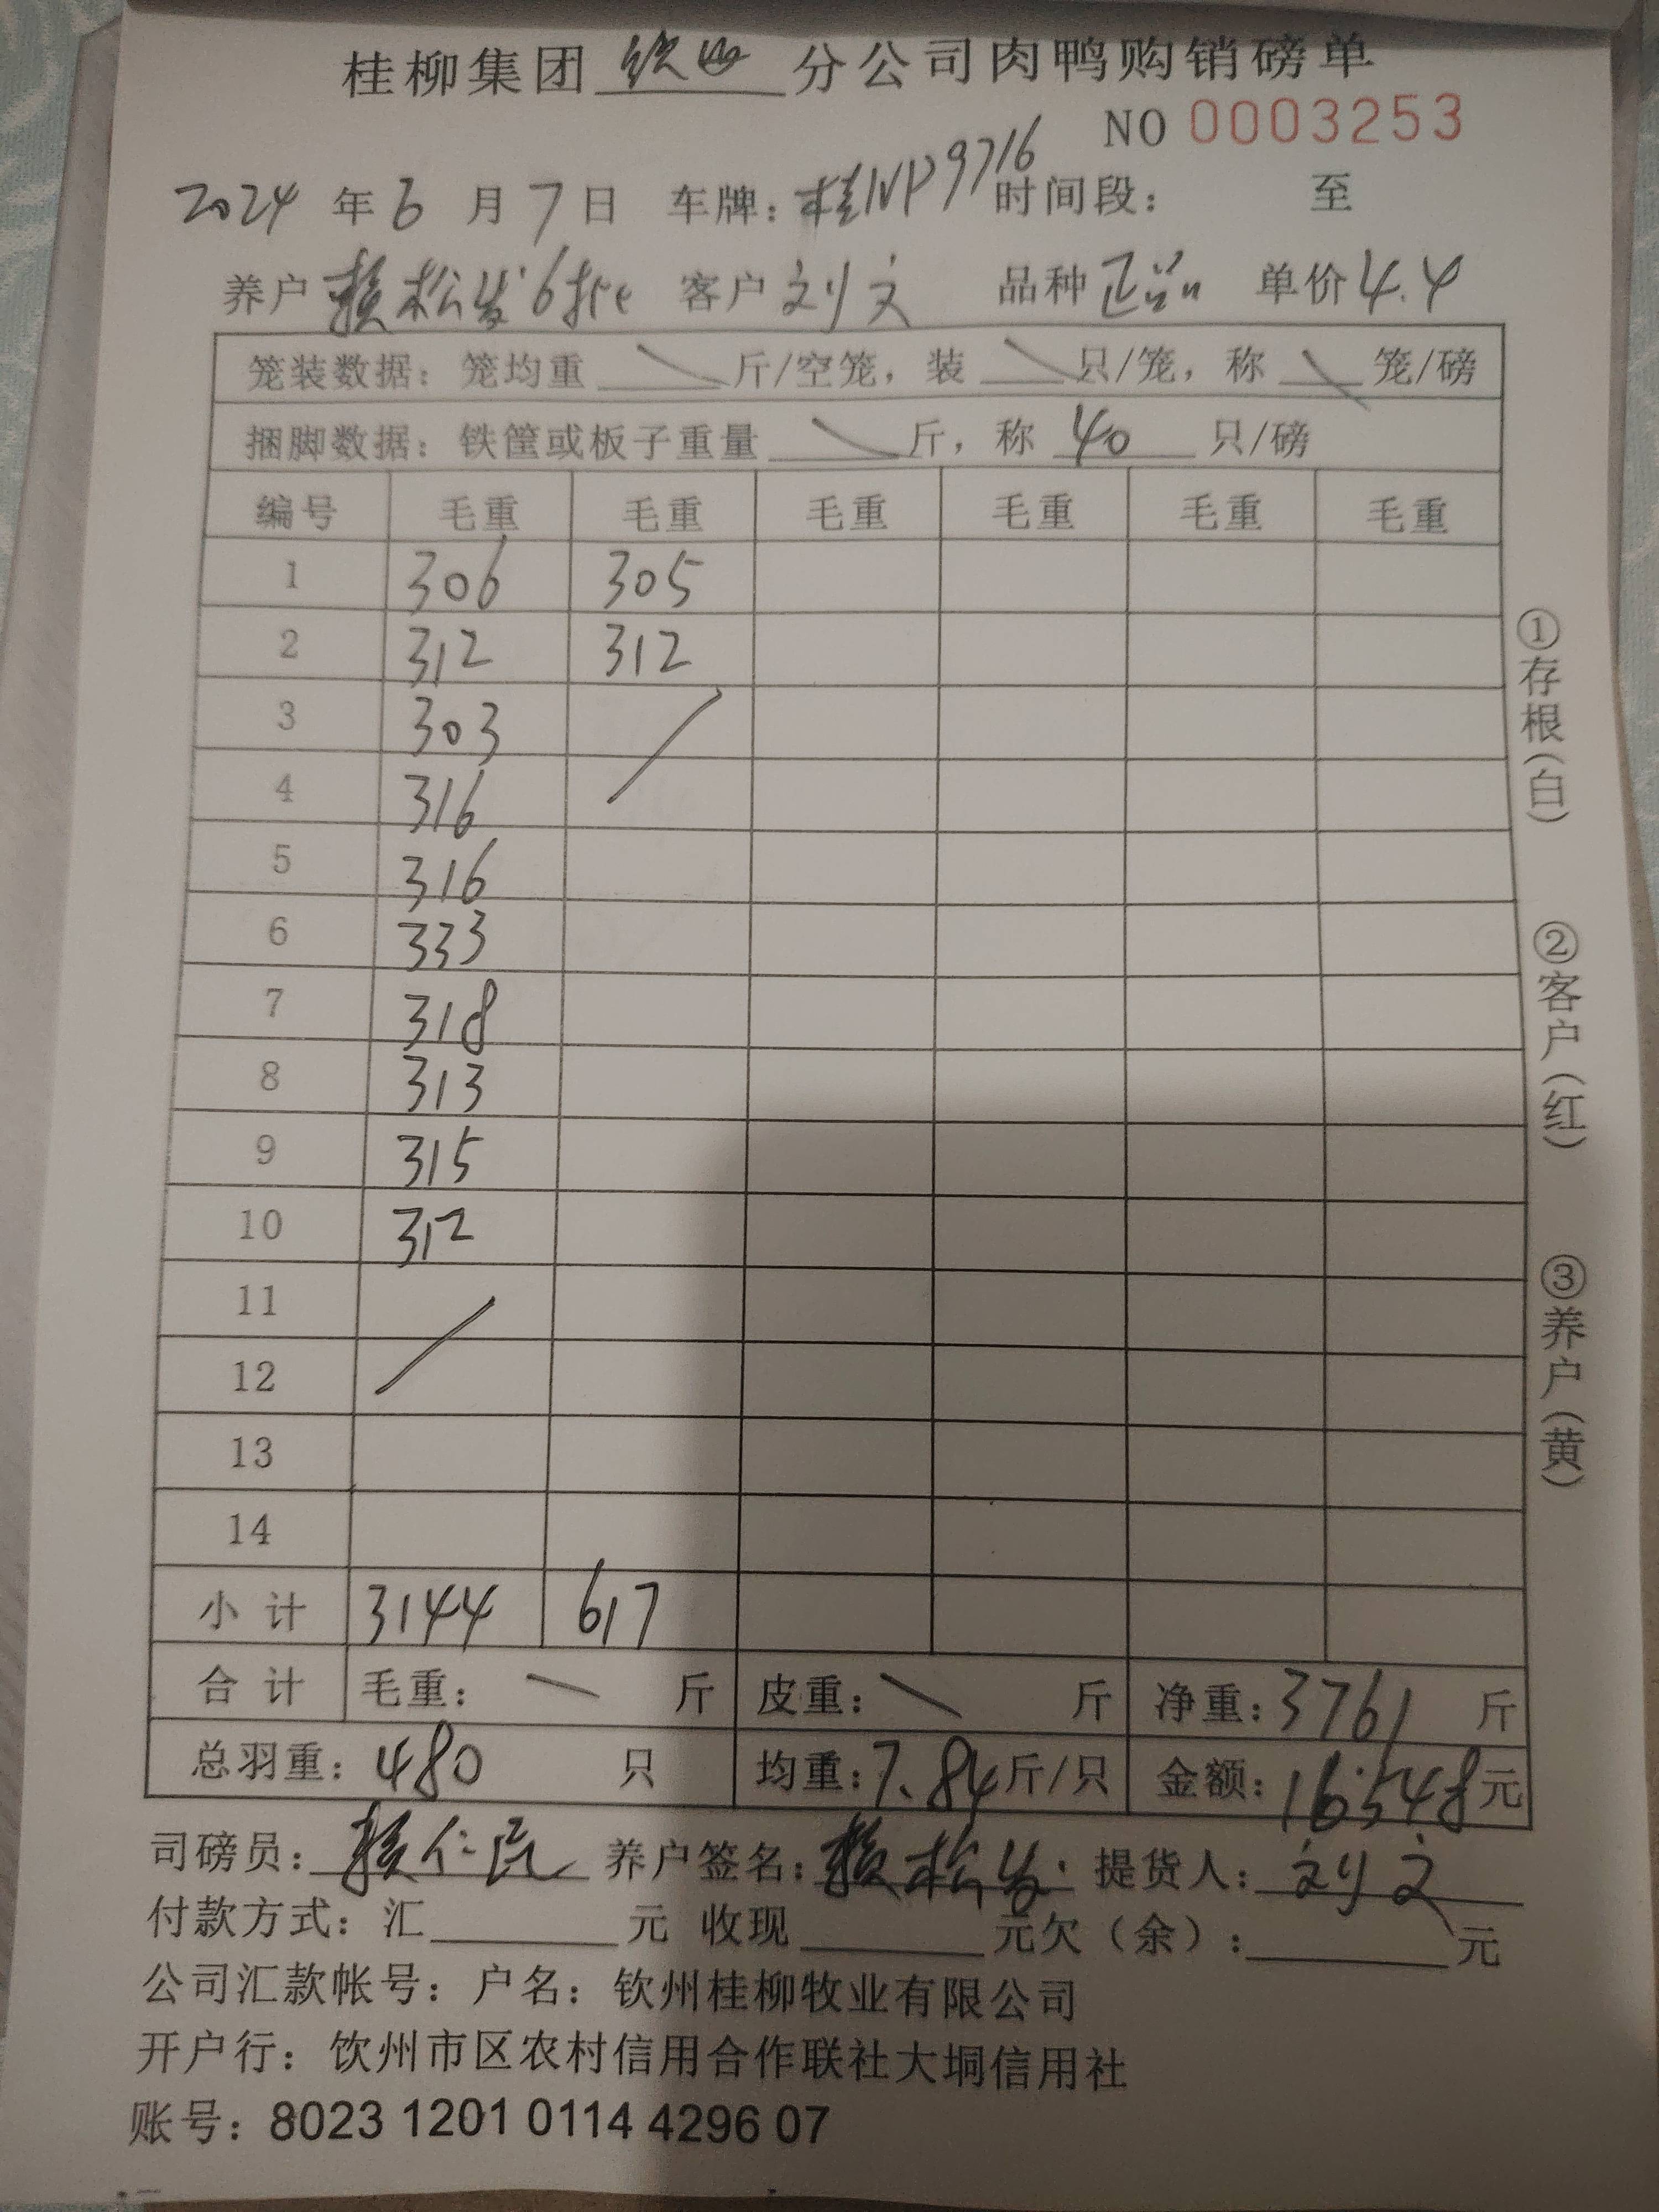 桂柳集团钦州分公司肉鸭购销磅单
NO 0003253
2024年6月7日 车牌：桂NP9716 时间段： 至
养户 赖松发6批 客户 刘文 品种 单价4.4
笼装数据：笼均重 斤/空笼，装 只/笼，称 笼/磅
捆脚数据：铁筐或板子重量 斤，称 40 只/磅
编号 毛重 毛重 毛重 毛重 毛重 毛重
1 306 305
2 312 312
3 303
4 316
5 316
6 333
7 318
8 313
9 315
10 312
11
12
13
14
小计 3144 617
合计 毛重： 斤 皮重： 斤 净重：3761 斤
总羽重：480 只 均重：7.84斤/只 金额：16548元
司磅员：赖仁民 养户签名：赖松发 提货人：刘文
付款方式：汇 元 收现 元欠（余）： 元
公司汇款帐号：户名：钦州桂柳牧业有限公司
开户行：钦州市区农村信用合作联社大垌信用社
账号：8023 1201 0114 4296 07
①存根（白）
②客户（红）
③养户（黄）